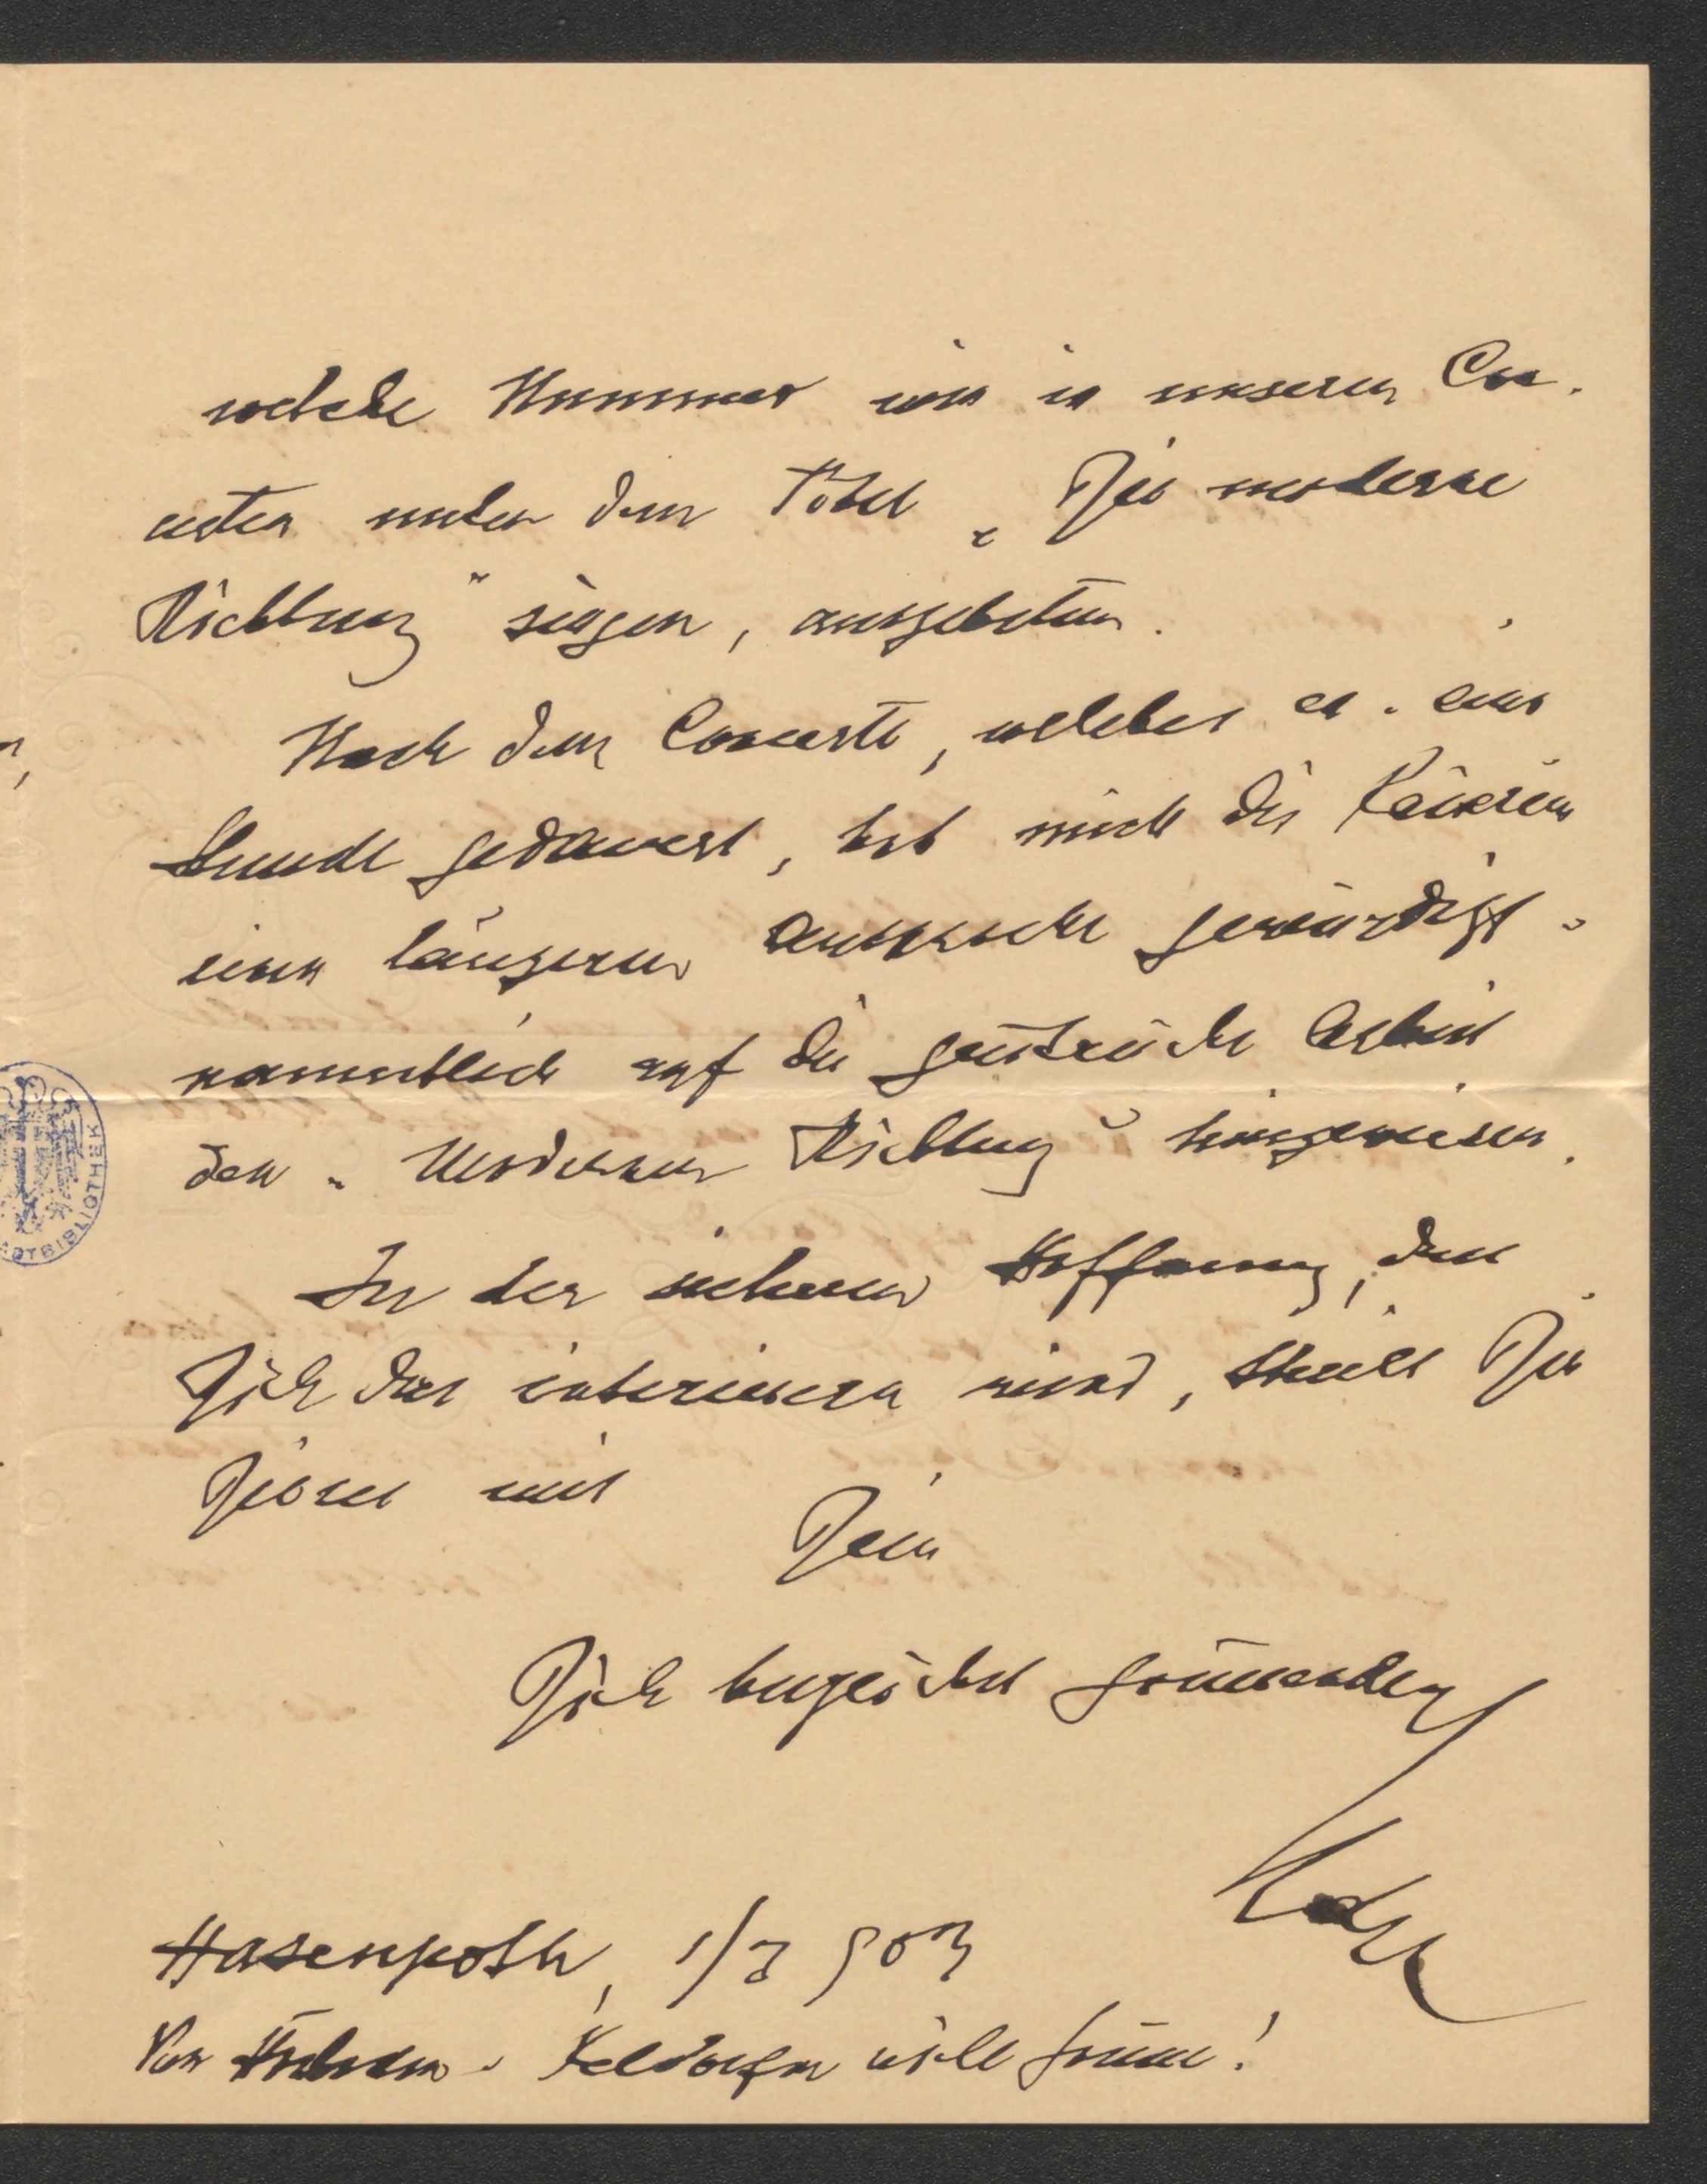 welche Nummer wir in unseren Con-
certen unter dem Titel „Die moderne
Richtung" singen, ausgebeten.
Nach dem Concerte, welches ca. eine
Stunde gedauert, hat mich die Kaiserin
einer längeren Ansprache gewürdigt u
namentlich auf die geistreiche Arbeit
der „Modernen Richtung" hingewiesen.
In der sicheren Hoffnung, dass
Dich das interessieren wird, theilt Dir
Dieses mit
Dein
Dich herzlichst grüssender
Hasenpoth, 1/3 903
Von Udel u viele Grüsse!
STADTBIBLIOTHEK